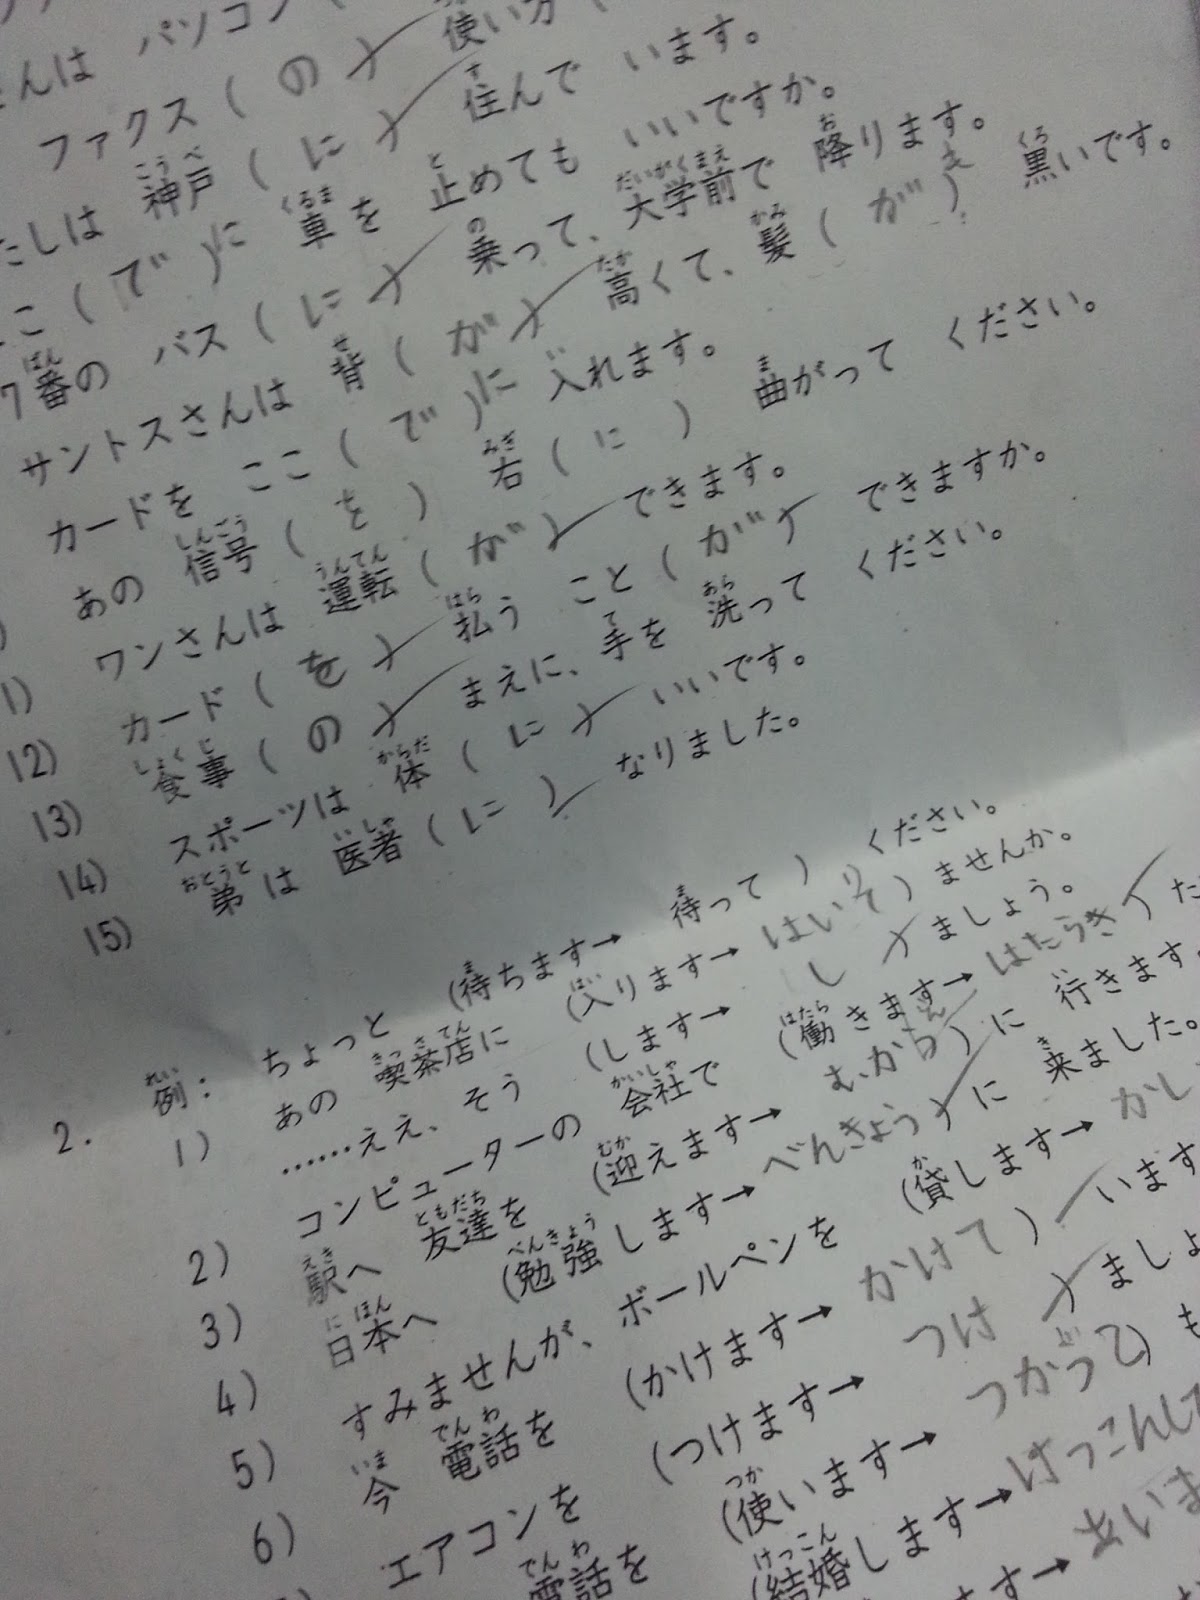 さんは パソコン
ファクス ( の ) 使い方
たしは 神戸 ( に ) 住んで います。
こ ( で ) に 車を 止めても いいですか。
7番の バス ( に ) 乗って、大学前で 降ります。
サントスさんは 背 ( が ) 高くて、髪 ( が ) 黒いです。
カードを ここ ( で ) に 入れます。
あの 信号 ( を ) 右 ( に ) 曲がって ください。
1) ワンさんは 運転 ( が ) できます。
12) カード ( を ) 払う こと ( が ) できますか。
13) 食事 ( の ) まえに、手を 洗って ください。
14) スポーツは 体 ( に ) いいです。
15) 弟は 医者 ( に ) なりました。
2. 例: ちょっと (待ちます→ 待って ) ください。
1) あの 喫茶店に (入ります→ はいそ ) り ませんか。
……ええ、そう (します→ し ) ましょう。
2) コンピューターの 会社で (働きます→ はたらき ) た
3) 駅へ 友達を (迎えます→ むか )に 行きます
4) 日本へ (勉強します→ べんきょう )に 来ました。
5) すみませんが、ボールペンを (貸します→ かし
6) 今 電話を (かけます→ かけて ) います
エアコンを (つけます→ つけ ) ましょ
電話を (使います→ つかって) も
(結婚します→ けっこんして
ます→ あいま